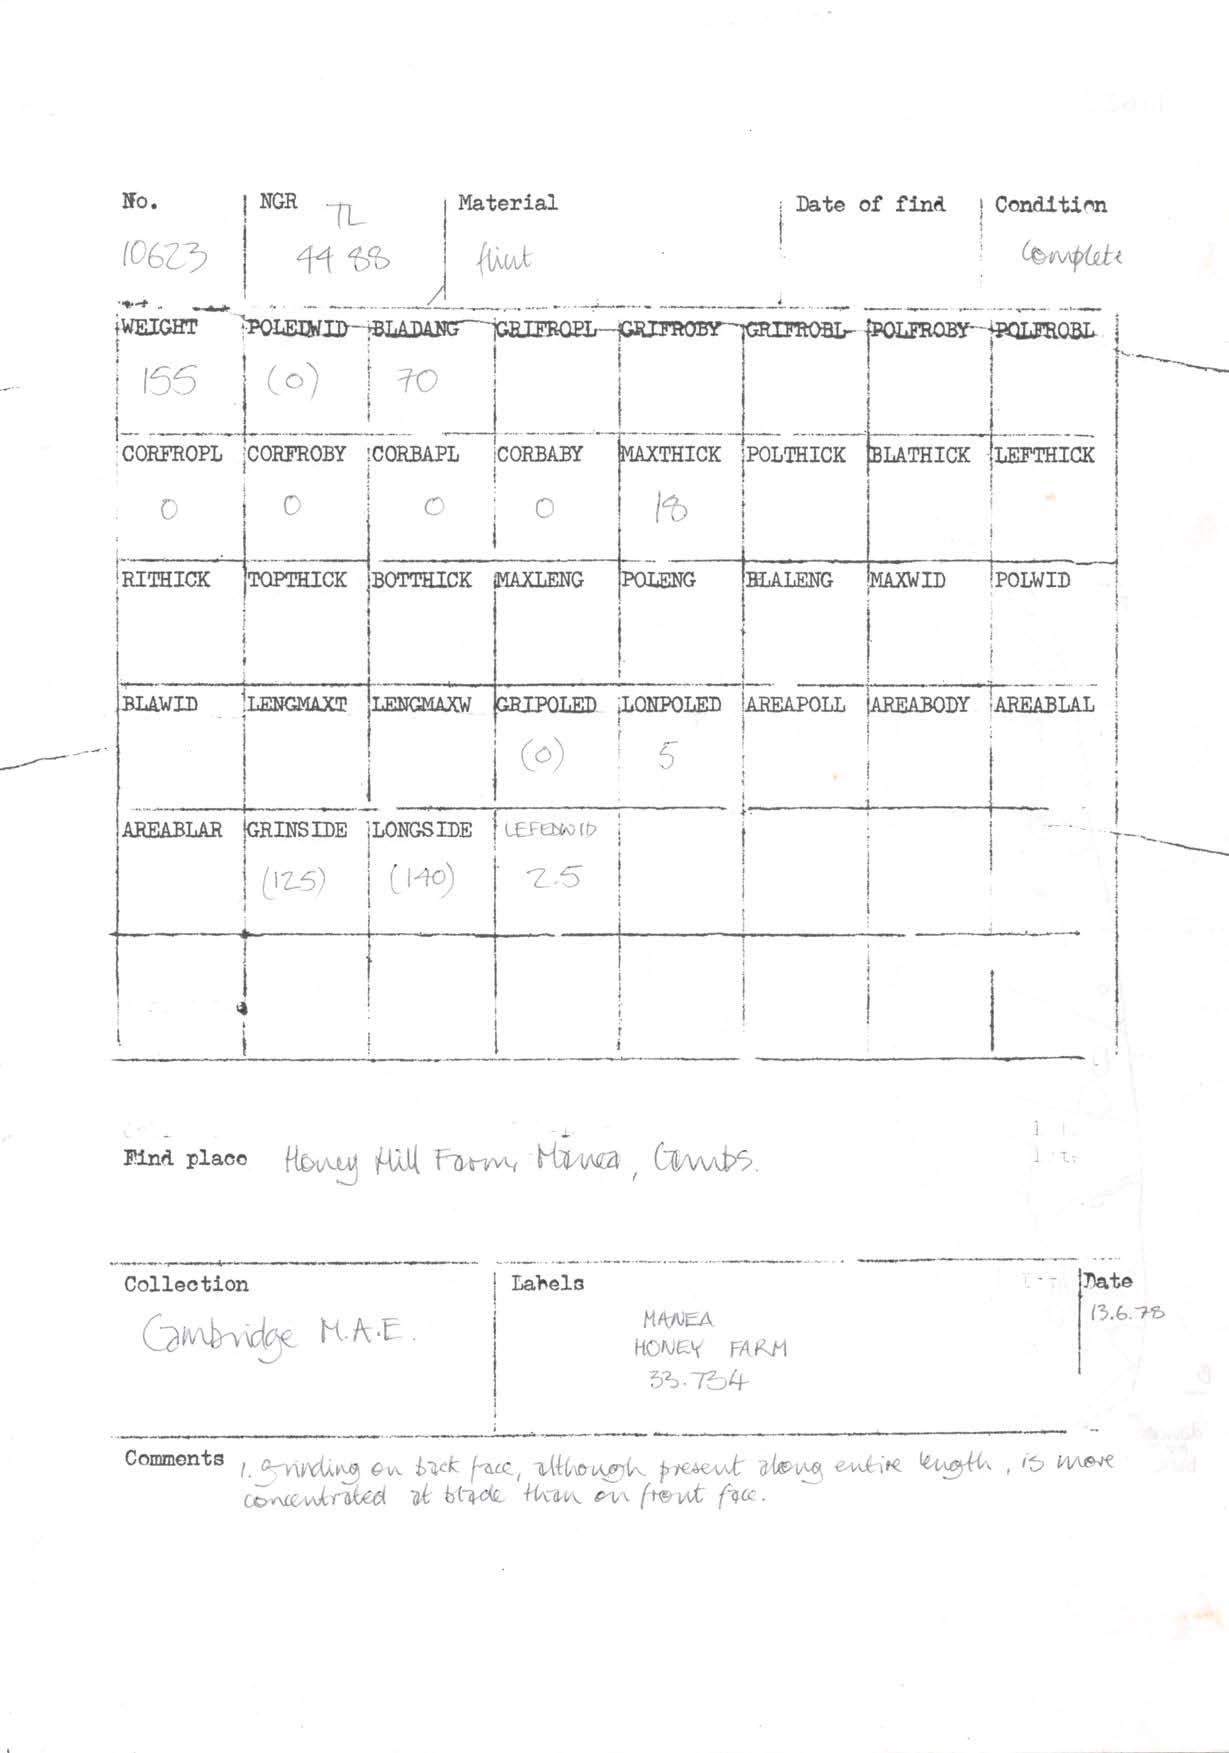 No. NGR TL Material Date of find Condition
10623 44 88 flint Complete
WEIGHT POLEDWID BLADANG GRIFROPL GRIFROBY GRIFROBL POLFROBY POLFROBL
155 (0) 70
CORFROPL CORFROBY CORBAPL CORBABY MAXTHICK POLTHICK BLATHICK LEFTHICK
0 0 0 0 18
RITHICK TOPTHICK BOTTHICK MAXLENG POLENG BLALENG MAXWID POLWID
BLAWID LENGMAXT LENGMAXW GRIPOLED LONPOLED AREAPOLL AREABODY AREABLAL
(0) 5
AREABLAR GRINSIDE LONGSIDE LEFEDWID
(125) (140) 2.5
Find place Honey Hill Farm, Manea, Cambs.
Collection Labels Date
Cambridge M.A.E. MANEA 13.6.78
HONEY FARM
33.734
Comments 1. grinding on back face, although present along entire length, is more
concentrated at blade than on front face.